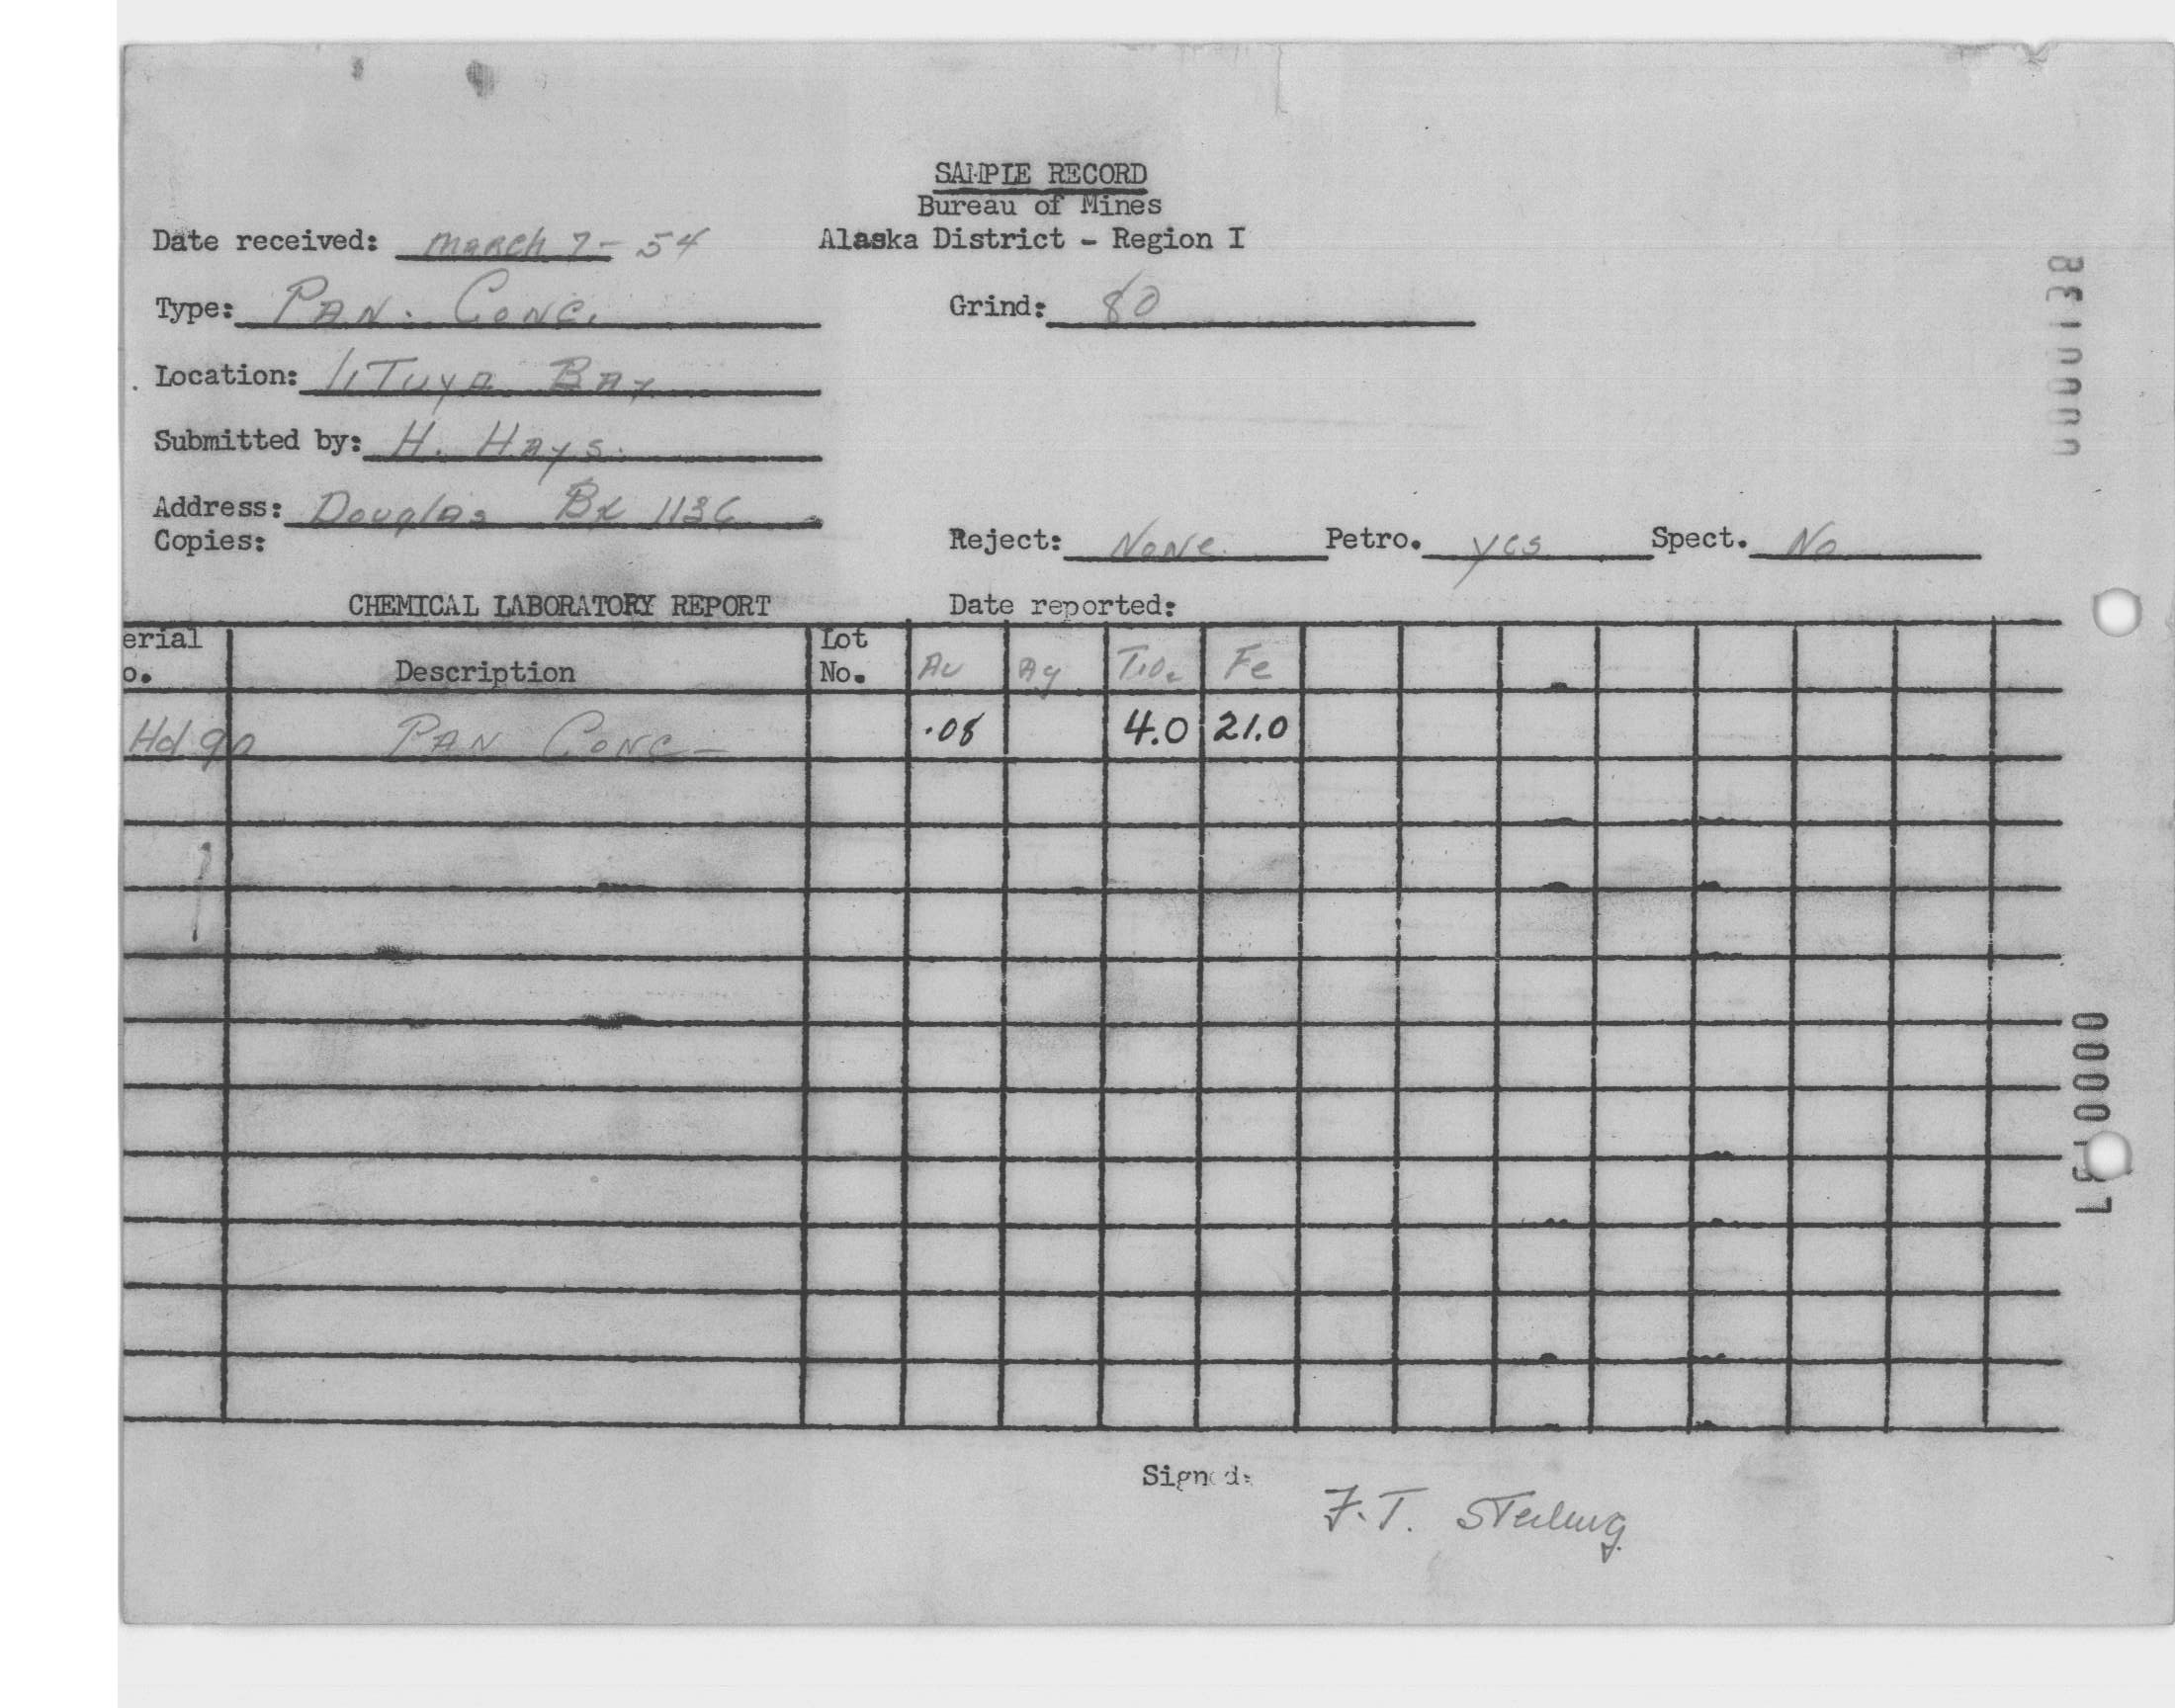 SAMPLE RECORD
Bureau of Mines
Date received: March 7-54 Alaska District - Region I
Type: PAN. CONC. Grind: 80
Location: LiTuya BAy
Submitted by: H. HAys.
Address: Douglas Bx 1136
Copies:
Reject: None Petro. yes Spect. No
CHEMICAL LABORATORY REPORT Date reported:
erial Lot
o. Description No. Au Ag TiO2 Fe
PAN CONC- .08 4.0 21.0
Signed:
F.T. STerling
0000138